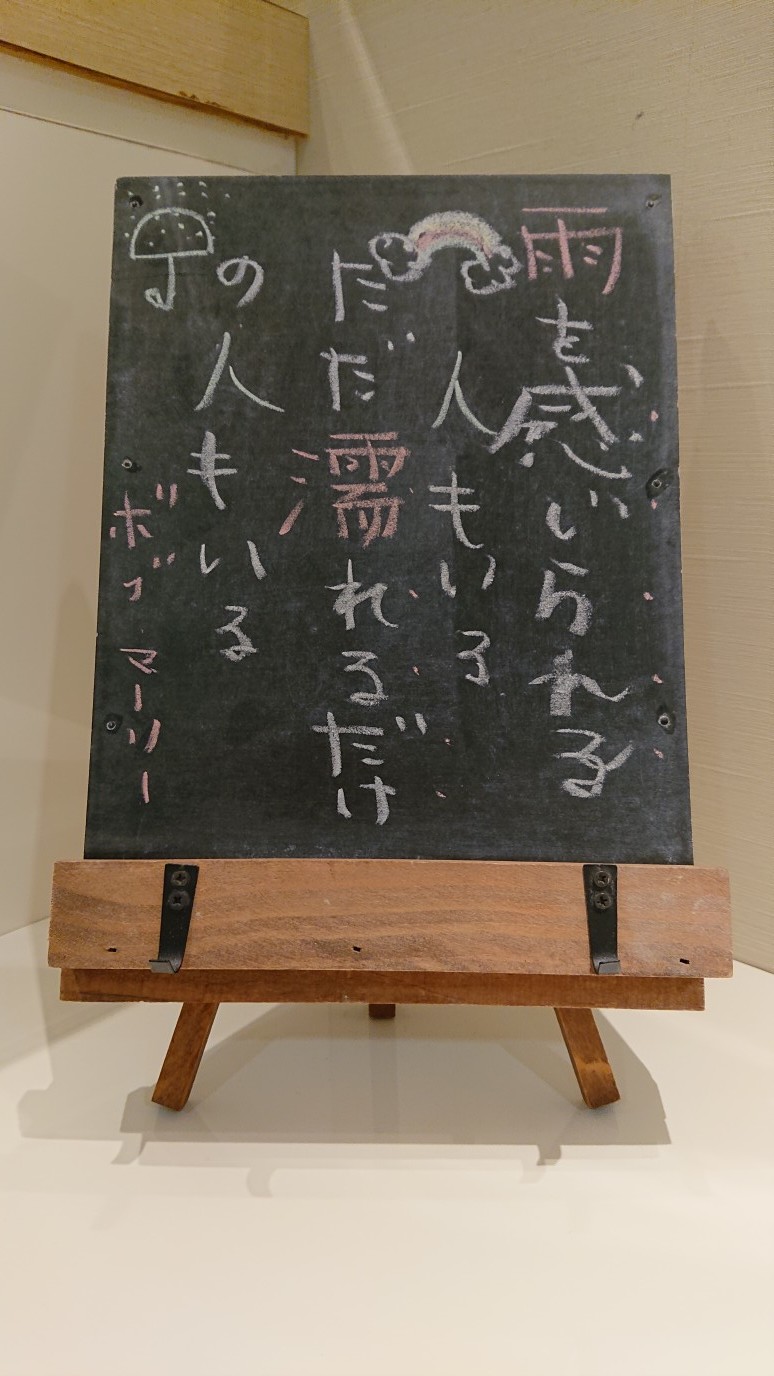 雨を感じられる
人もいる
ただ濡れるだけ
の人もいる
ボブ マーリー